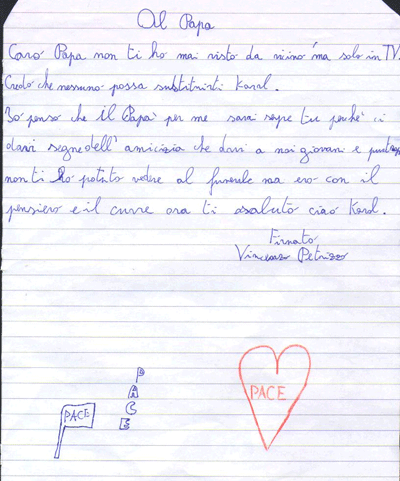 Al Papa
Caro Papa non ti ho mai visto da vicino ma solo in TV.
Credo che nessuno possa sustituirti Karol.
Io penso che il Papa per me sarai sepre tu perchè ci
davi segno dell'amicizia che davi a noi giovani e
non ti ho potuto vedere al funerale ma ero con il
pensiero e il cuore ora ti saluto ciao Karol.
Firmato
Vincenzo Petruzzo
PACE
PACE
PACE